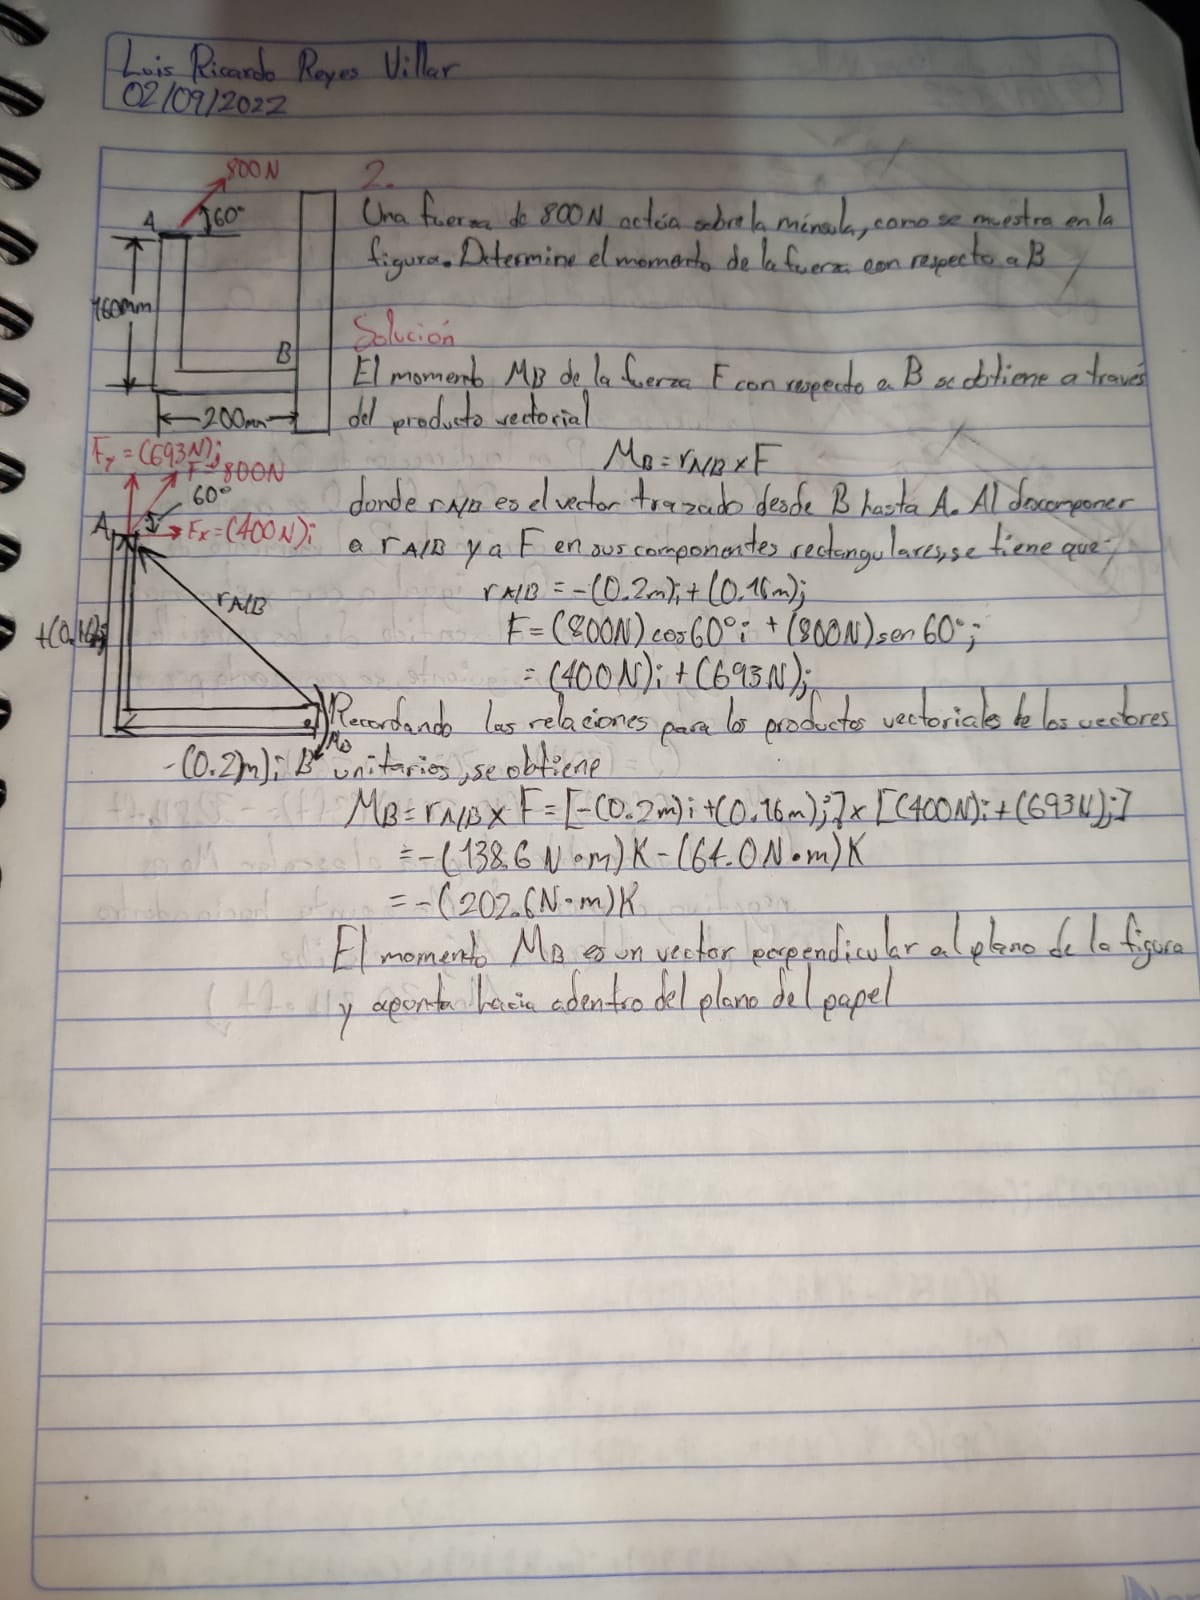 Luis Ricardo Reyes Villar
02/09/2022
800N
A
60°
160mm
B
200mm
2.
Una fuerza de 800N actúa sobre la ménsula, como se muestra en la
figura. Determine el momento de la fuerza con respecto a B
Solución
El momento MB de la fuerza F con respecto a B se obtiene a través
del producto vectorial
MB = rA/B x F
donde rA/B es el vector trazado desde B hasta A. Al descomponer
a rA/B y a F en sus componentes rectangulares, se tiene que:
rA/B = -(0.2m)i + (0.16m)j
F = (800N) cos60°i + (800N) sen 60°j
= (400N)i + (693N)j
Fy = (693N)j
F = 800N
60°
A
Fx = (400N)i
rA/B
+(0.16)j
MB
-(0.2m)i B
Recordando las relaciones para los productos vectoriales de los vectores
unitarios, se obtiene
MB = rA/B x F = [-(0.2m)i + (0.16m)j] x [(400N)i + (693N)j]
= -(138.6 N·m)K - (64.0N·m)K
= -(202.6N·m)K
El momento MB es un vector perpendicular al plano de la figura
y aponta hacia adentro del plano del papel